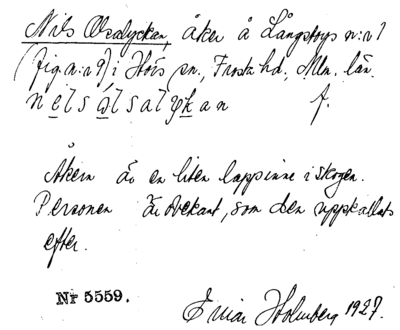 Nils Olsalyckan, åker å Långstorps n:r 1
(fig. n:r 9) i Hörs sn., Frosta hd., Mlm. län.
f.
Åkern är en liten lappinne i skogen.
Personen är obekant, som den uppkallats
efter.
Nr 5559.
Einar Holmberg 1927.